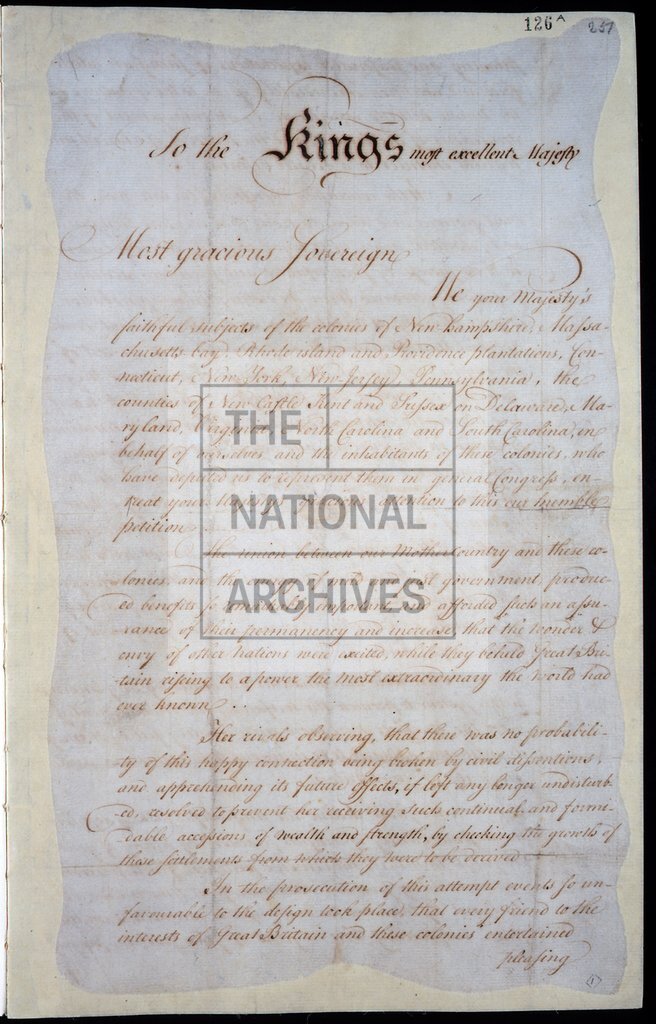 126 A 257
To the Kings most excellent Majesty
Most gracious Sovereign
We your Majesty's
faithful subjects of the colonies of New hampshire, Massa-
chusetts bay, Rhode island and Providence plantations, Con-
necticut, New York, New Jersey, Pennsylvania, the
counties of New Castle Kent and Sussex on Delaware, Ma-
ryland, Virginia, North Carolina and South Carolina, in
behalf of ourselves and the inhabitants of these colonies, who
have deputed us to represent them in general Congress, en-
treat your Majesty's gracious attention to this our humble
petition.
The union between our Mother Country and these co-
lonies, and the energy of mild and just government, produc-
ed benefits so remarkably important, and afforded such an assu-
rance of their permanency and increase, that the wonder &
envy of other Nations were excited, while they beheld Great Bri-
tain rissing to a power the most extraordinary the world had
ever known..
Her rivals observing, that there was no probabili-
ty of this happy connection being broken by civil dissentions,
and apprehending its future effects, if left any longer undisturb-
ed, resolved to prevent her receiving such continual and formi-
dable accessions of wealth and strength, by checking the growth of
these settlements from which they were to be derived
In the prosecution of this attempt events so un-
favourable to the design took place, that every friend to the
interests of Great Britain and these colonies entertained
pleasing
(1)
THE
NATIONAL
ARCHIVES